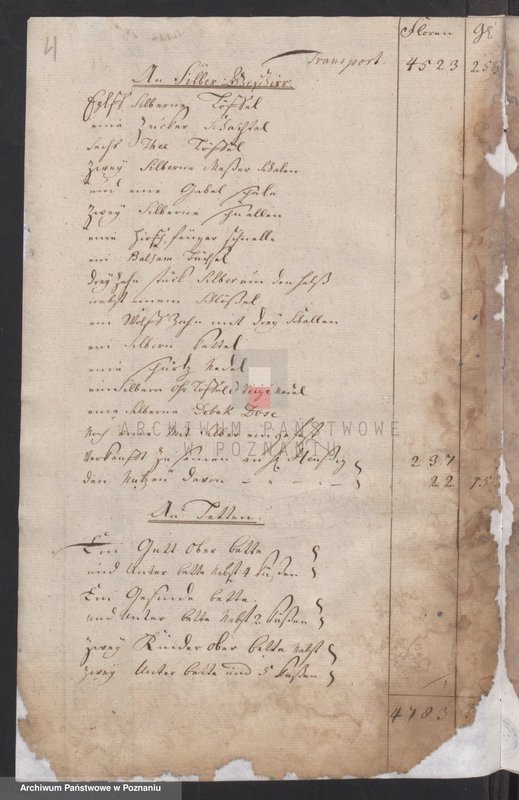 4
Floren gl
Transport. 4523 25
An Silber Geschirr.
Eylff Silberne Löffel
eine Zucker Schachtel
sechs Thee Löffel
Zwey Silberne Meßer Schalen
und eine Gabel Schale
Zwey Silberne Schnallen
eine Hirschfänger Schnalle
ein Balsam Büchsel
dreyzehn stück Silber um den Halß
nebst einem Schlößel
ein Wolffs Zahn mit drey Schallen
ein Silbern
eine Nadel
ein Silbern Ohr Löffel Nadel
eine Silberne Tobak Dose
Noch eine Mit Silber eingefaßt
Verkaufft zusamen an H. 237
den Nutzen davon 22
An Betten.
Ein Gutt Ober bette
und Unter bette Nebst 4 Küßen
Ein Gesinde bette
und Unter bette Nebst 2 Küßen
Zwey Kinder Ober bette Nebst
Zwey Unter bette und 5 Küßen
4783
ARCHIWUM PAŃSTWOWE
W POZNANIU
Archiwum Państwowe w Poznaniu